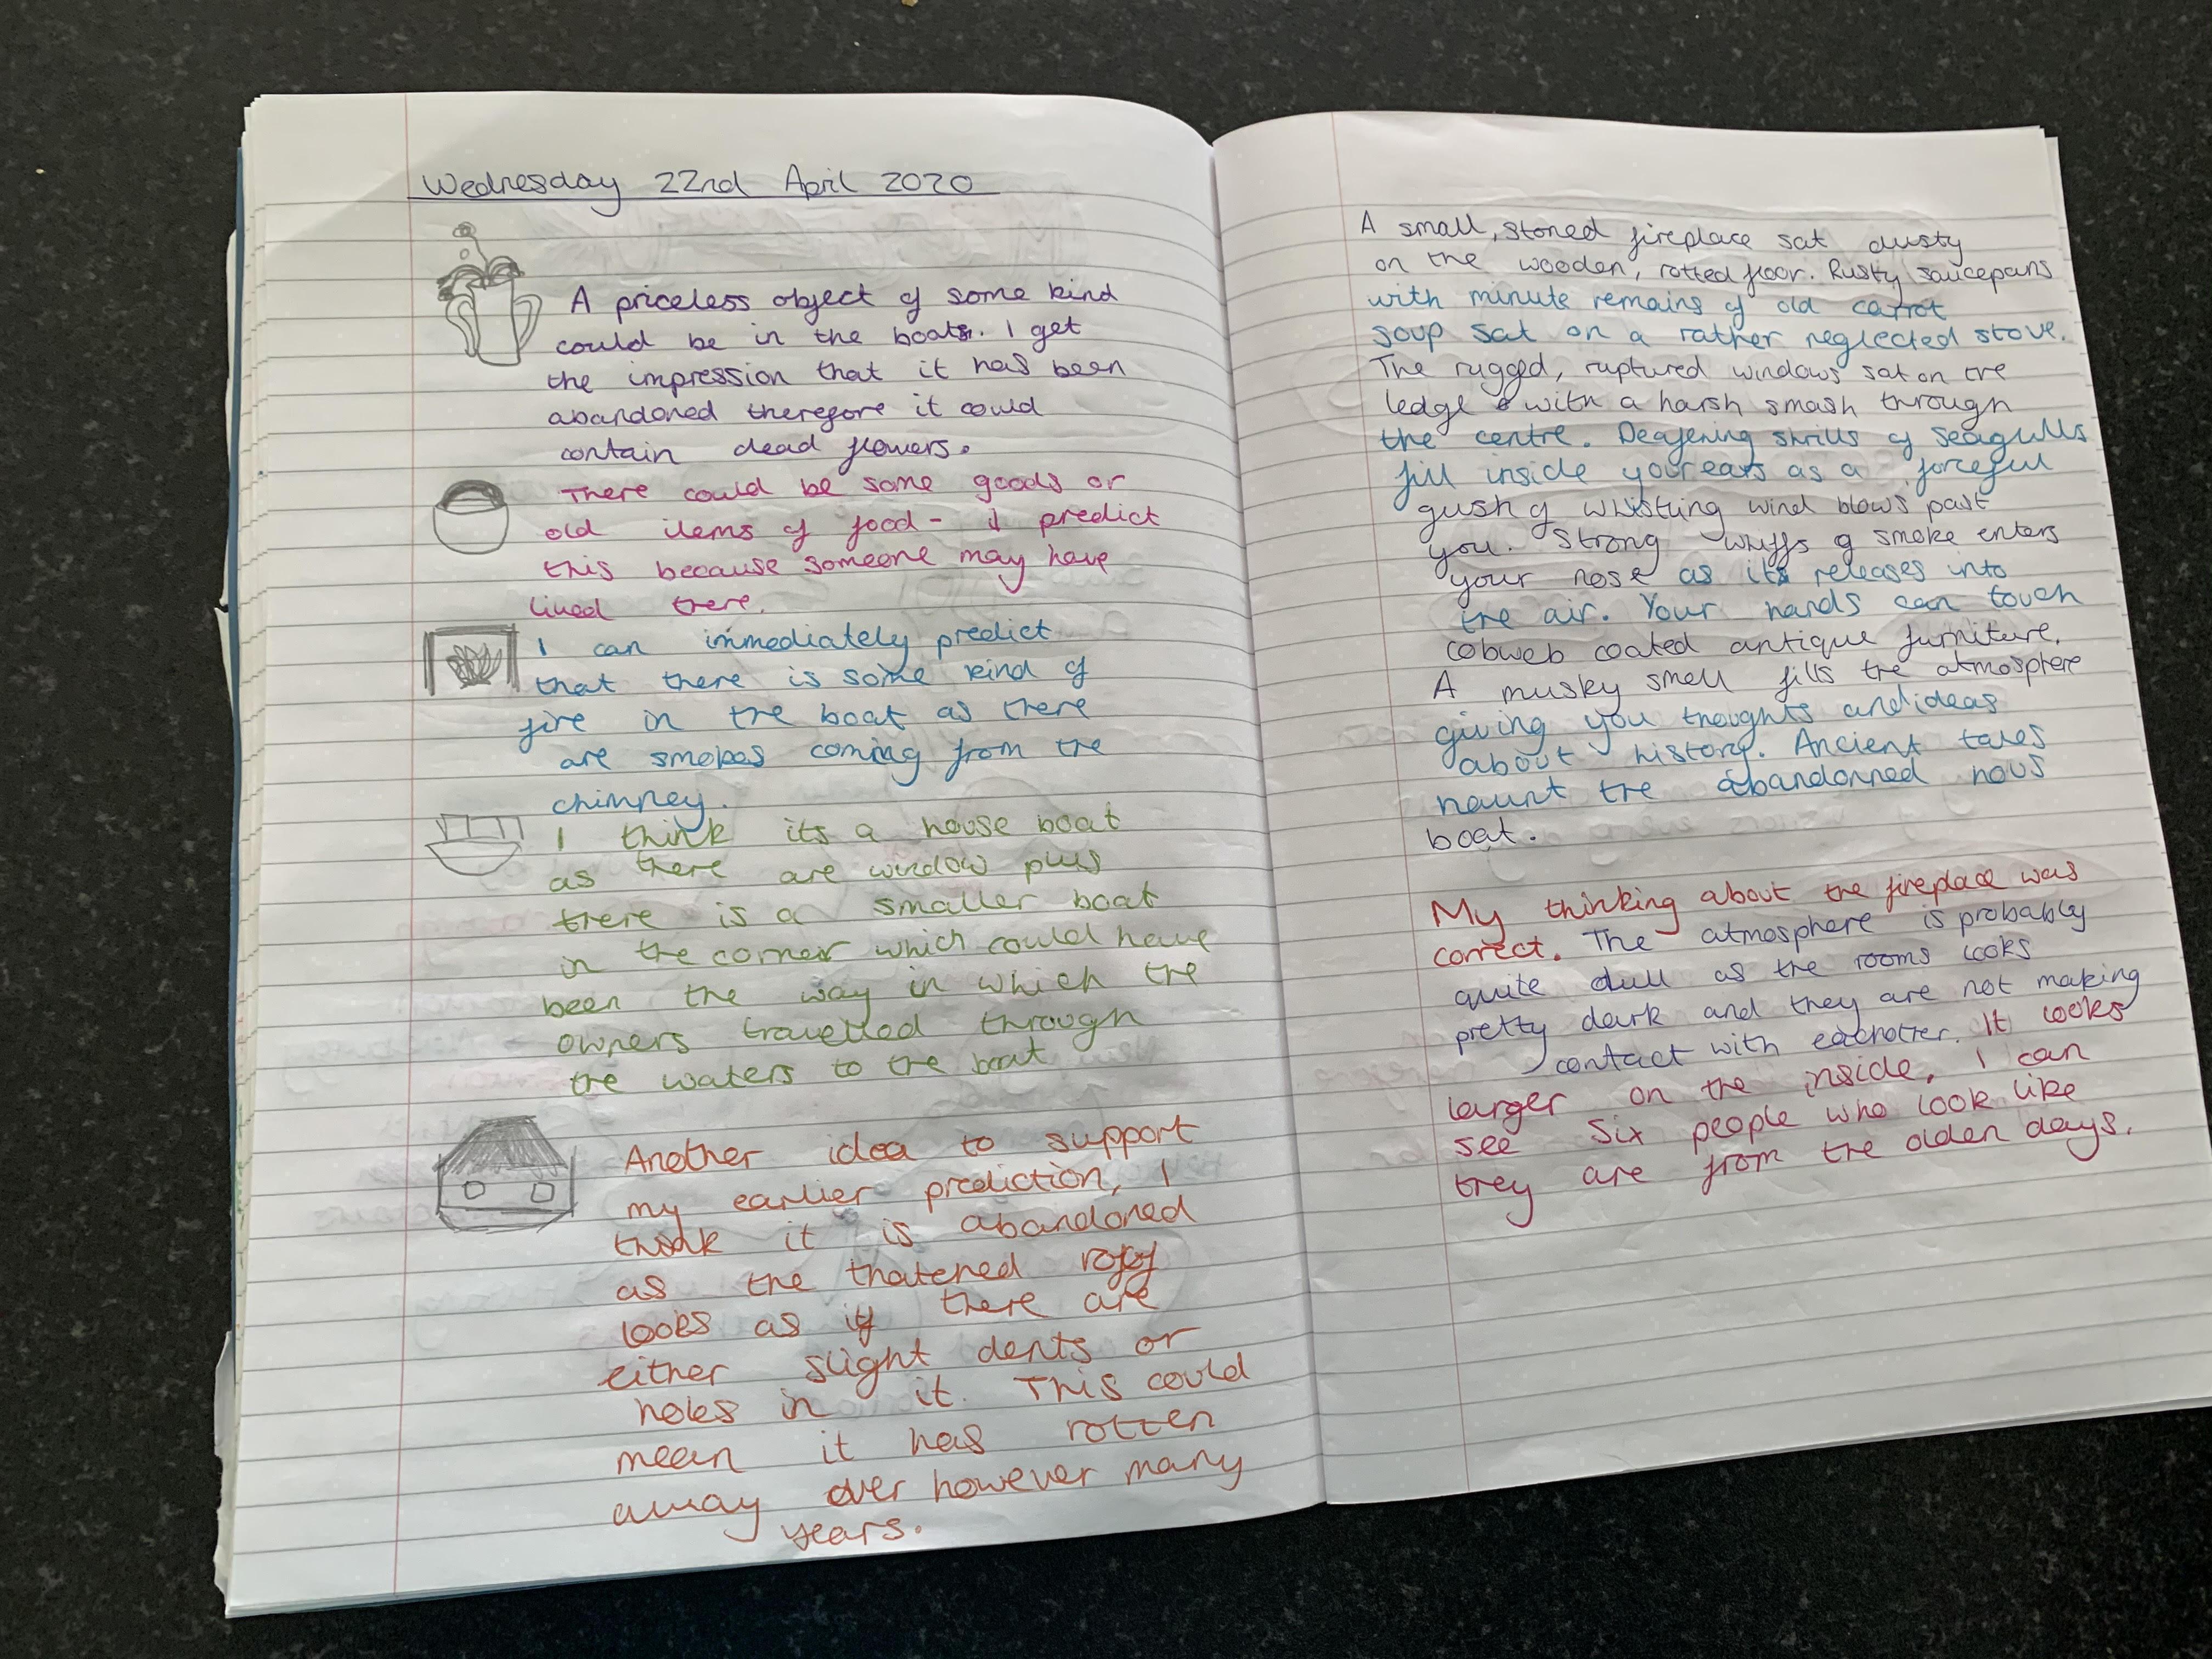 Wednesday 22nd April 2020
A priceless object of some kind
could be in the boats. I get
the impression that it has been
abandoned therefore it could
contain dead flowers.
There could be some goods or
old items of food - I predict
this because someone may have
lived there.
I can immediately predict
that there is some kind of
fire in the boat as there
are smokes coming from the
chimney.
I think its a house boat
as there are window plus
there is a smaller boat
in the corner which could have
been the way in which the
owners travelled through
the waters to the boat
Another idea to support
my earlier prediction, I
think it is abandoned
as the thatched roof
looks as if there are
either slight dents or
holes in it. This could
mean it has rotten
away over however many
years.
A small, stoned fireplace sat dusty
on the wooden, rotted floor. Rusty saucepans
with minute remains of old carrot
soup sat on a rather neglected stove.
The rugged, ruptured windows sat on the
ledge with a harsh smash through
the centre. Deafening shrills of seagulls
fill inside your ears as a forceful
gush of whistling wind blows past
you. Strong whiffs of smoke enters
your nose as its releases into
the air. Your hands can touch
cobweb coated antique furniture.
A musky smell fills the atmosphere
giving you thoughts and ideas
about history. Ancient tales
haunt the abandonned hous
boat.
My thinking about the fireplace was
correct. The atmosphere is probably
quite dull as the rooms looks
pretty dark and they are not making
contact with eachother. It looks
larger on the inside, I can
see six people who look like
they are from the olden days.